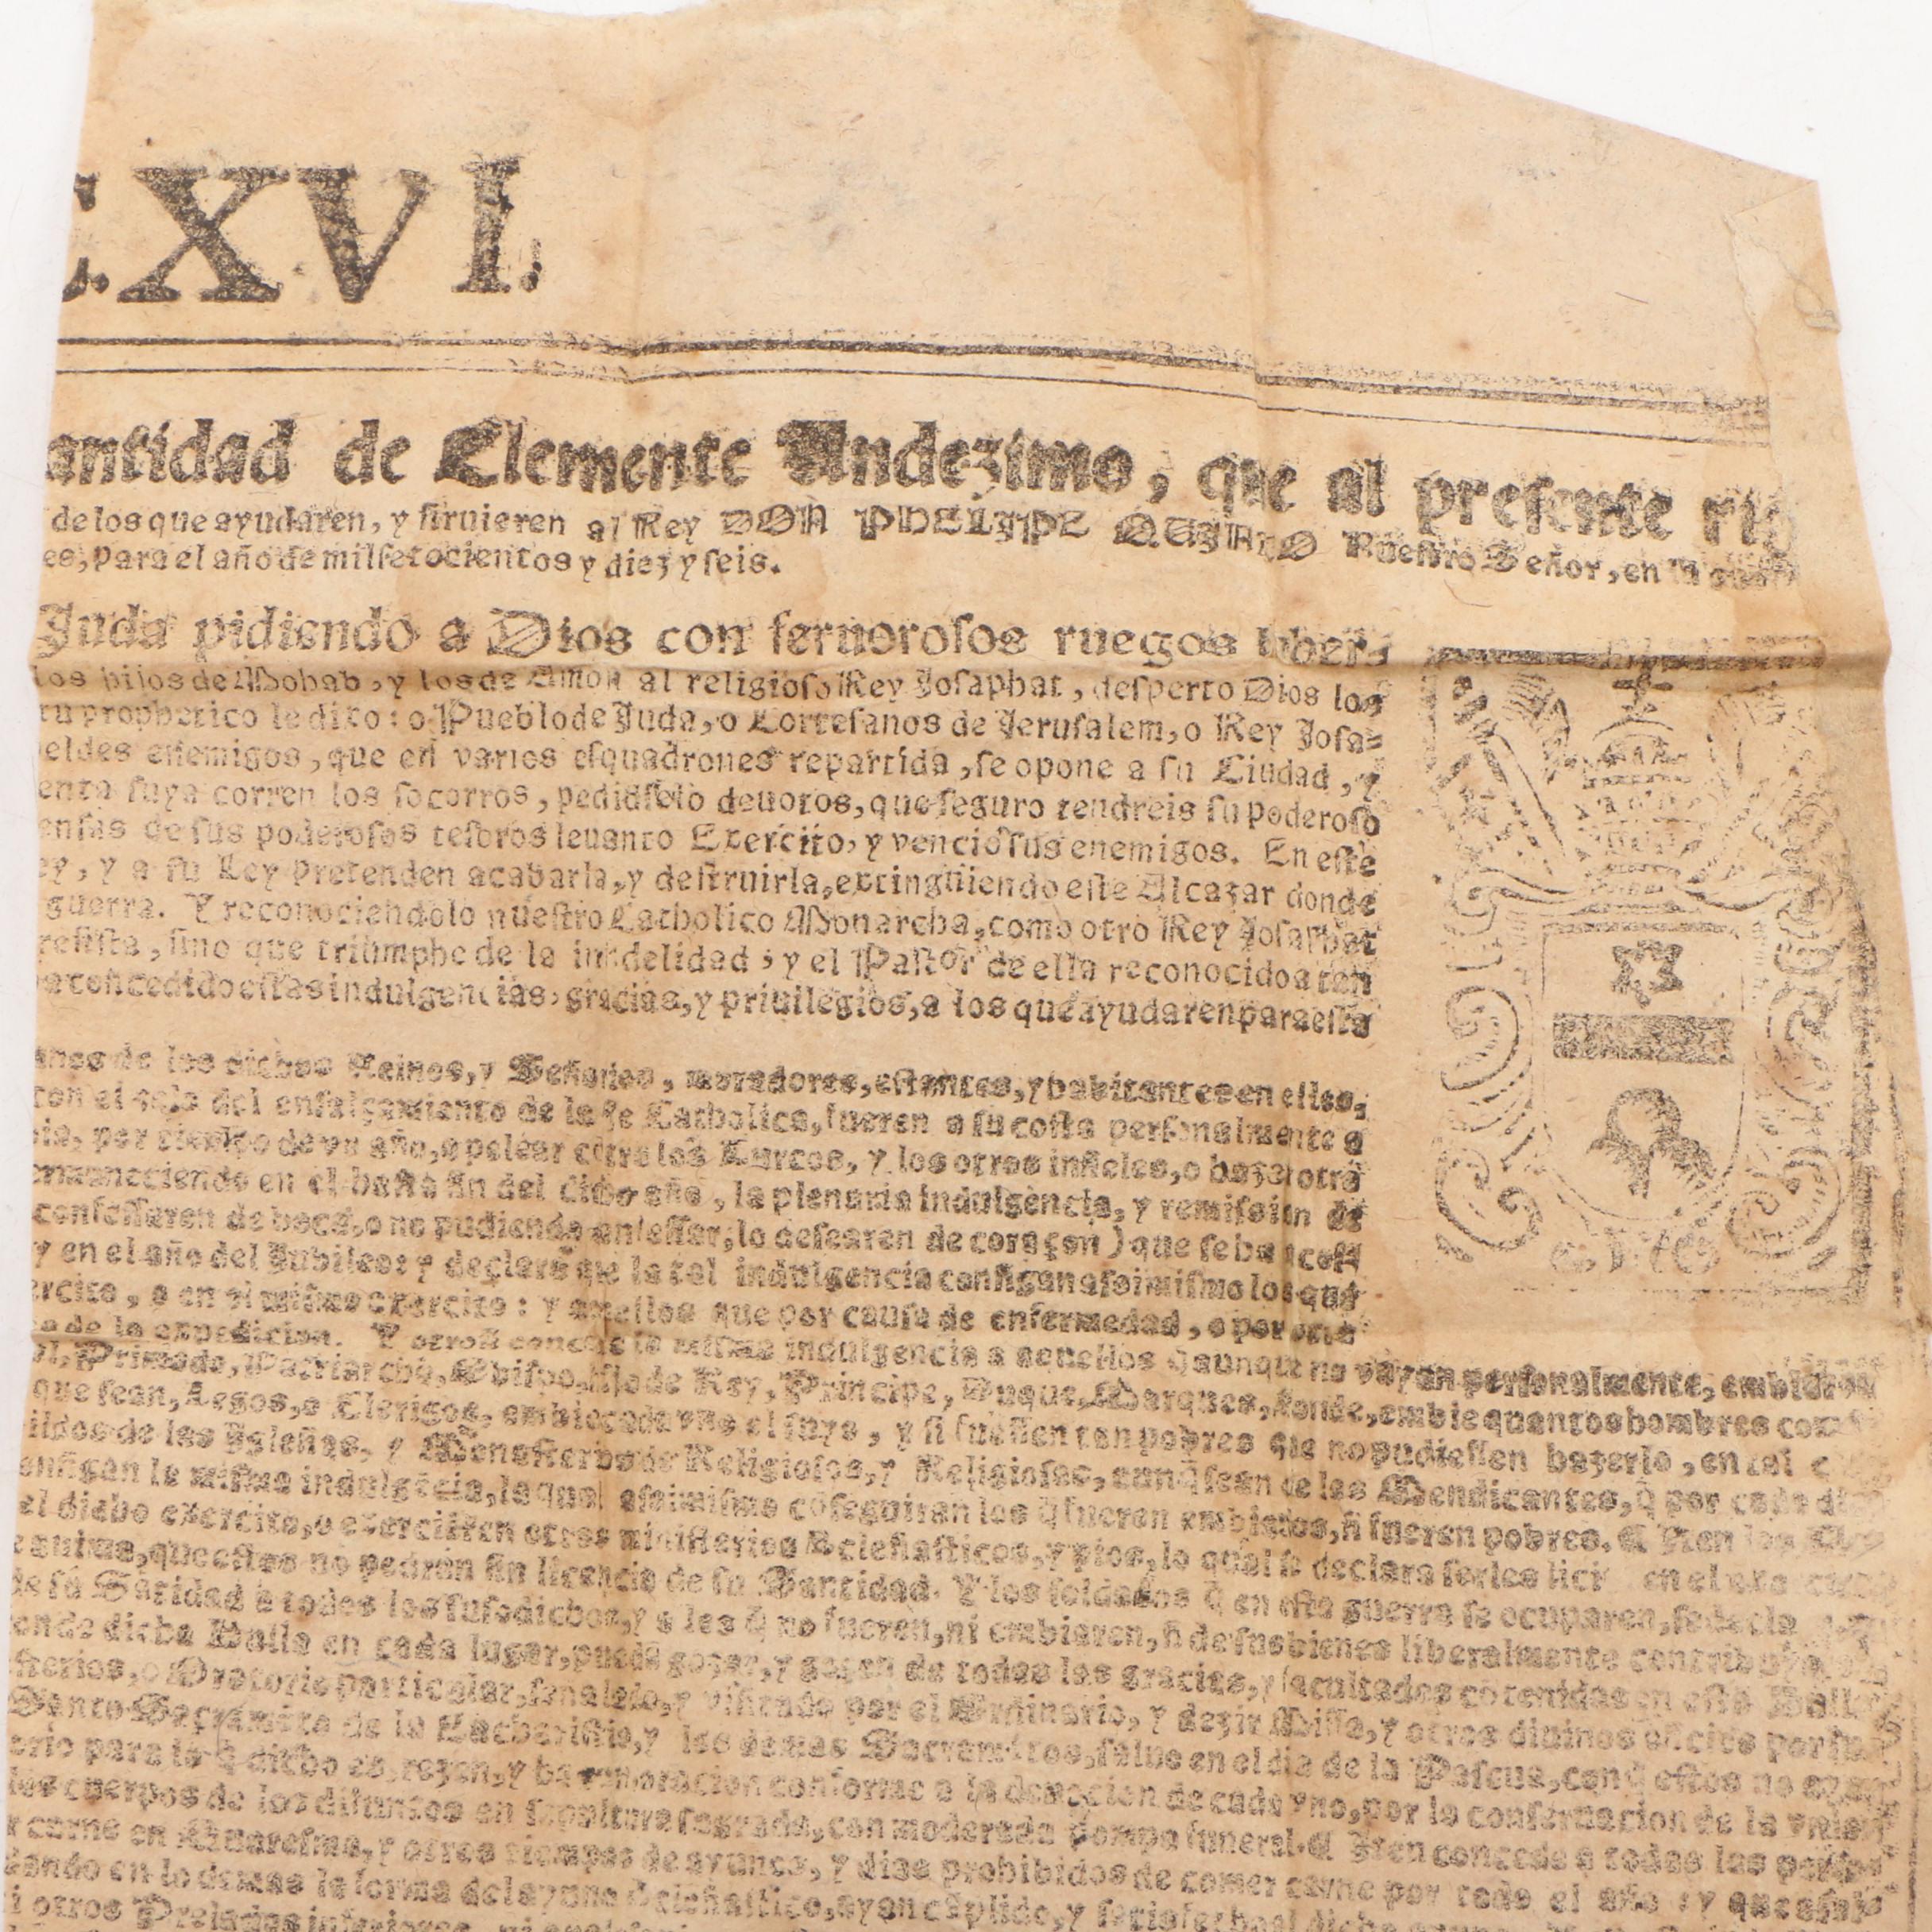 XVI.
antidad de Clemente Undezimo, que al presente ri
de los que ayudaren, y siruieren al Rey DON PHELIPE QUINTO Nuestro Señor, en la
es, para el año de mil setocientos y diez y seis.
Juda pidiendo a Dios con feruorosos ruegos liber-
los hijos de Mobab, y los de Amon al religioso Rey Josaphat, desperto Dios los
tu prophetico le dixo: o Pueblo de Juda, o Cortesanos de Jerusalem, o Rey Josa-
eldes enemigos, que en varios esquadrones repartida, se opone a su Ciudad, y
enta suya corren los socorros, pedidselo deuotos, que seguro tendreis su poderoso
ensas de sus poderosos tesoros leuanto Exercito, y vencio sus enemigos. En este
ey, y a su Ley pretenden acabarla, y destruirla, extingüiendo este Alcazar donde
guerra. Y reconociendolo nuestro Catholico Monarcha, como otro Rey Josaphat
resista, sino que triumphe de la infidelidad; y el Pastor de ella reconocido a tan
a concedido estas indulgencias, gracias, y priuilegios, a los que ayudaren para esta
de los dichos Reinos, y Señorios, moradores, estantes, y habitantes en ellos,
con el zelo del ensalçamiento de la Fe Catholica, fueren a su costa personalmente a
por tiempo de vn año, a pelear cõtra los Turcos, y los otros infieles, o hazer otra
ermaneciendo en el hasta fin del dicho año, la plenaria indulgencia, y remision de
confessaren de boca, o no pudiendo confessar, lo desearen de coraçon) que se ha
y en el año del Jubileo: y declara que la tal indulgencia consigan asimismo los que
ercito, o en el mismo exercito: y aquellos que por causa de enfermedad, o por otra
de la expedicion. Y otrosi concede la misma indulgencia a aquellos q̃ aunque no vayan personalmente, embiaren
Primado, Patriarcha, Obispo, hijo de Rey, Principe, Duque, Marques, Conde, embie quantos hombres con
que sean, Legos, o Clerigos, embie cada vno el suyo, y si fuessen tan pobres que no pudiessen hazerlo, en tal
ildos de las Iglesias, y Monasterios de Religiosos, y Religiosas, aunq̃ sean de los Mendicantes, q̃ por cada
onsigan la misma indulgẽcia, la qual asimismo cõseguiran los q̃ fueren embiados, si fueren pobres. Iten los
el dicho exercito, o exerciten otros ministerios Eclesiasticos, y pios, lo qual se declara serles en el
que estos no podran sin licencia de su Santidad. Y los soldados q̃ en esta guerra se ocuparen, se decla
de su Sãtidad a todos los susodichos, y a los q̃ no fueren, ni embiaren, si de sus bienes liberalmente contribuyeren
dicha Bulla en cada lugar, puedã gozar, y gozen de todas las gracias, y facultades cõtenidas en esta Bulla
sterios, o Oratorio particular, señalado, y visitado por el Ordinario, y dezir Missa, y otros diuinos oficios por su
Santo Sacramẽto de la Eucharistia, y los demas Sacramẽtos, saluo en el dia de la Pascua, con q̃ estos no
para lo q̃ dicho es, rezen, y hagan oracion conforme a la deuocion de cada vno, por la conseruacion de la
los cuerpos de los difuntos en sepultura sagrada, con moderada pompa funeral. Iten concede a todas las
carne en Quaresma, y otros tiempos de ayunos, y dias prohibidos de comer carne por todo el año y que
ando en lo demas la forma del ayuno Eclesiastico, ayan cũplido, y
otros Prelados inferiores,